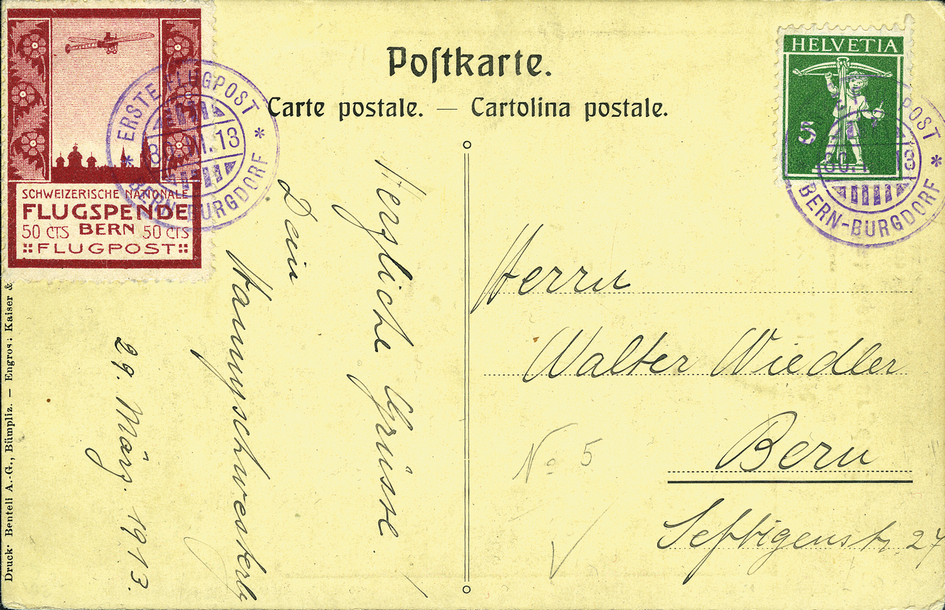 Postkarte.
Carte postale. — Cartolina postale.
SCHWEIZERISCHE NATIONALE
FLUGSPENDE
50 CTS BERN 50 CTS
FLUGPOST
* ERSTE FLUGPOST *
30.III.13
BERN-BURGDORF
HELVETIA
5
POST *
BERN-BURGDORF
Herzliche Grüsse
Dein
29. März. 1913.
Herrn
Walter Wiedler
Bern
Seftigenstr. 27
No 5
Druck: Benteli A.-G., Bümpliz. — Engros: Kaiser &